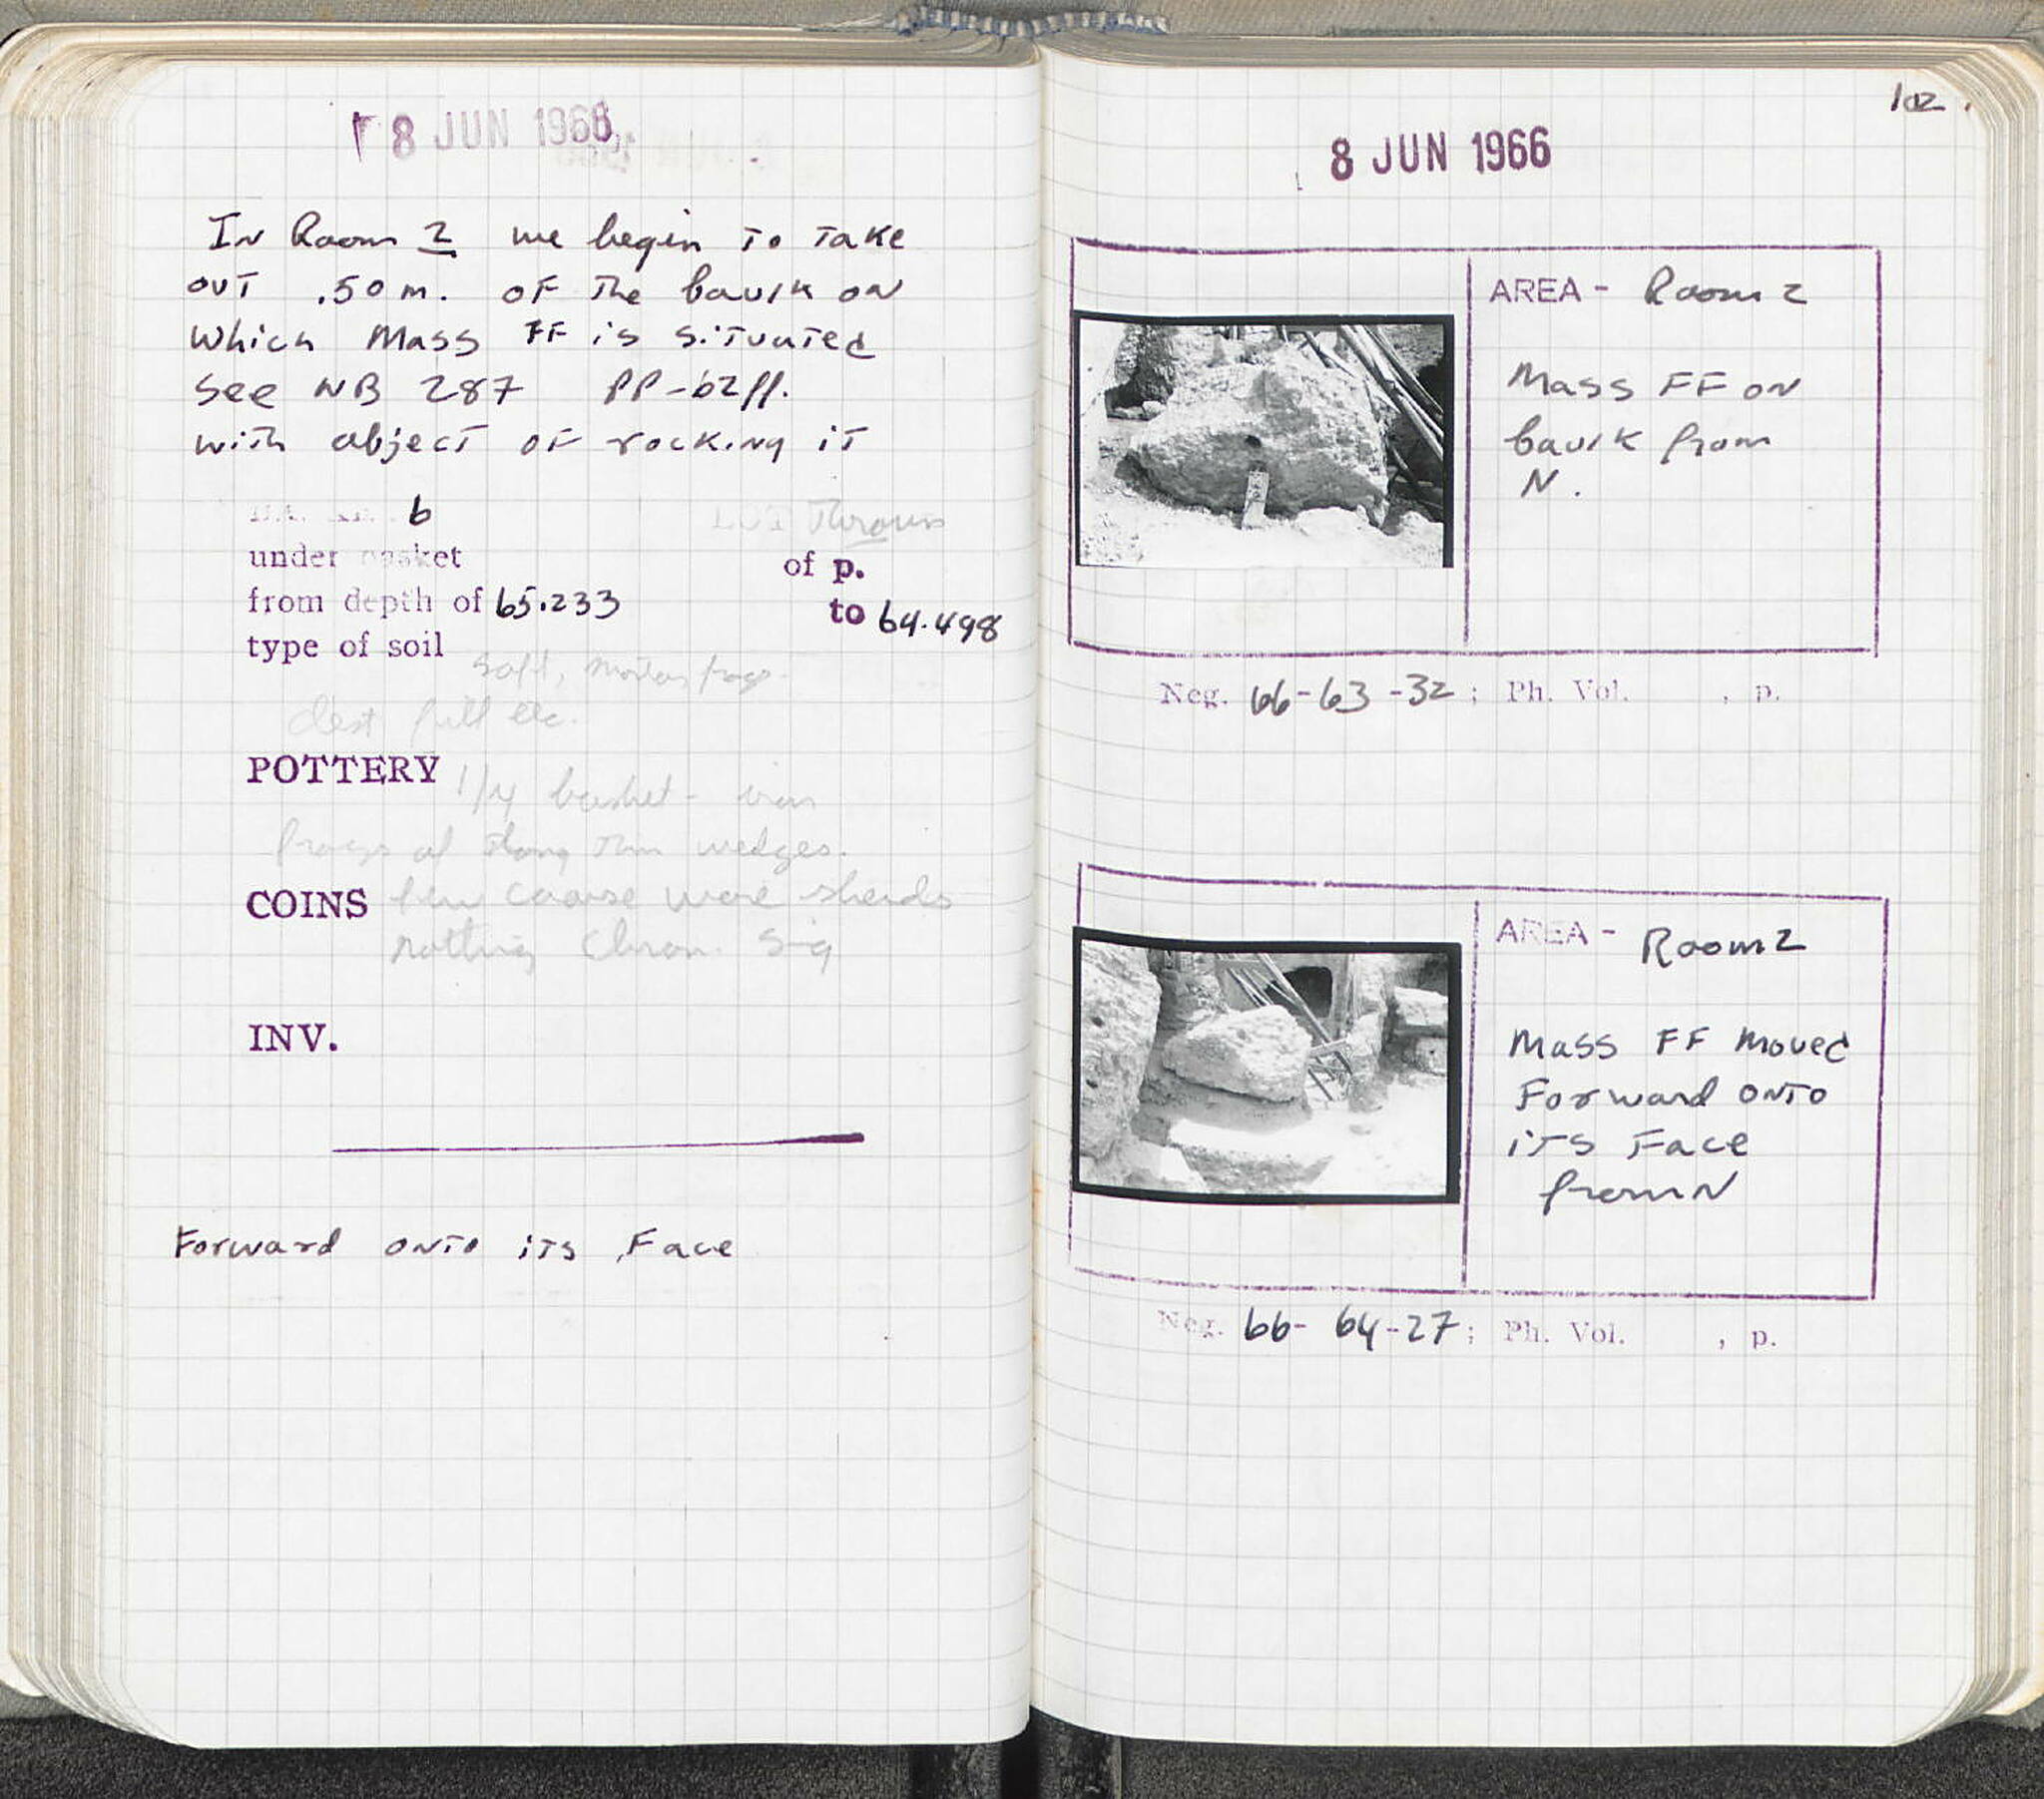 8 JUN 1966
In Room 2 we begin to take
out .50m. of the baulk on
which Mass FF is situated
See NB 287 pp-62ff.
with object of rocking it
6
LOT Thrown
under basket of p.
from depth of 65.233 to 64.498
type of soil
soft, mortar frag.
dest fill etc.
POTTERY 1/4 basket - iron
frags of long thin wedges.
COINS few coarse ware sherds
nothing Chron. Sig
INV.
Forward onto its Face
102.
8 JUN 1966
AREA - Room 2
Mass FF on
baulk from
N.
Neg. 66-63-32; Ph. Vol. , p.
AREA - Room 2
Mass FF Moved
Forward onto
its Face
from N
Neg. 66-64-27; Ph. Vol. , p.